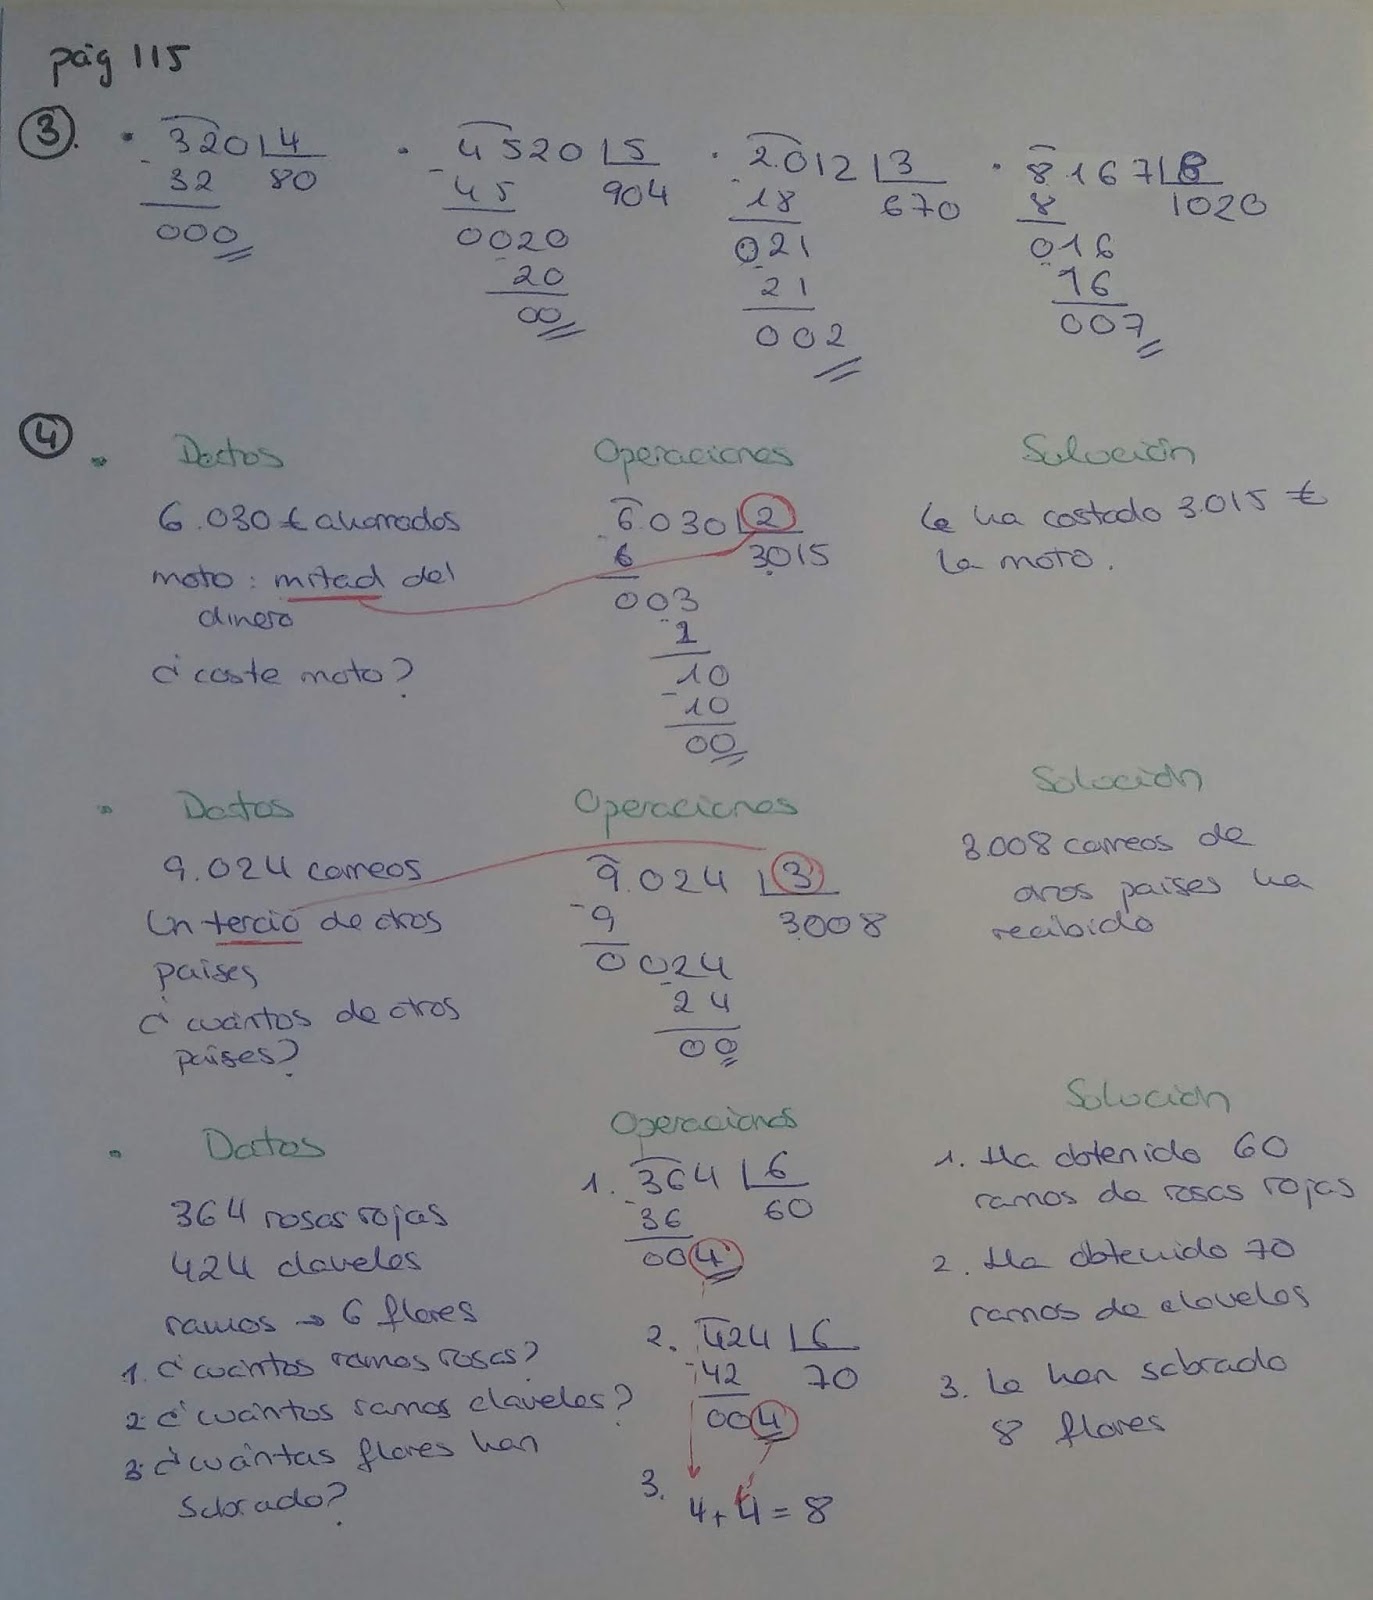 pág 115
3. · 320 4 · 4520 5 · 2012 3 · 8167 8
- 32 80 - 45 904 - 18 670 8 1020
000 0020 021 016
- 20 - 21 - 16
00 002 007
4
· Datos Operaciones Solución
6.030 € ahorrados 6.030 2 Le ha costado 3.015 €
moto: mitad del - 6 3.015 la moto.
dinero 003
¿coste moto? - 2
10
- 10
00
· Datos Operaciones Solución
9.024 correos 9.024 3 3.008 correos de
Un tercio de otros - 9 3.008 otros países ha
países 0024 recibido
¿cuántos de otros - 24
países? 00
· Datos Operaciones Solución
364 rosas rojas 1. 364 6 1. Ha obtenido 60
424 claveles - 36 60 ramos de rosas rojas
ramos → 6 flores 004 2. Ha obtenido 70
1. ¿cuántos ramos rosas? 2. 424 6 ramos de claveles
2. ¿cuántos ramos claveles? - 42 70 3. Le han sobrado
3. ¿cuántas flores han 004 8 flores
sobrado? 3. 4 + 4 = 8